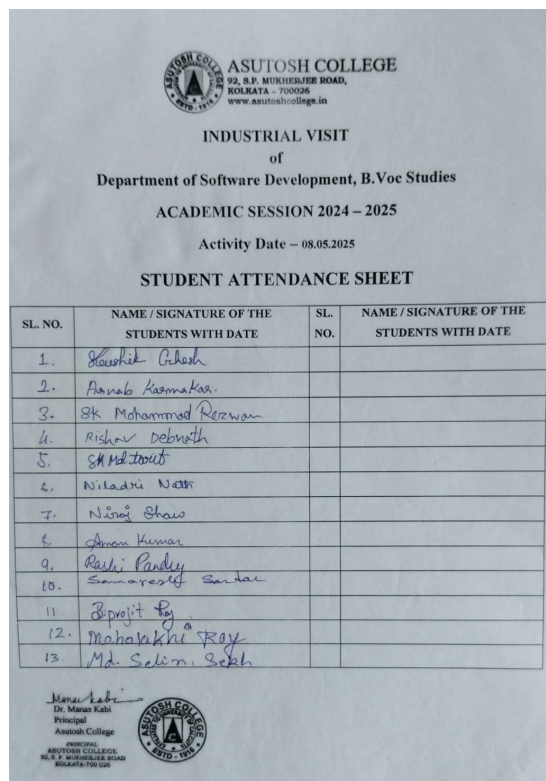 ASUTOSH COLLEGE
92, S.P. MUKHERJEE ROAD,
KOLKATA - 700026
www.asutoshcollege.in
INDUSTRIAL VISIT
of
Department of Software Development, B.Voc Studies
ACADEMIC SESSION 2024 – 2025
Activity Date – 08.05.2025
STUDENT ATTENDANCE SHEET
SL. NO. NAME / SIGNATURE OF THE STUDENTS WITH DATE SL. NO. NAME / SIGNATURE OF THE STUDENTS WITH DATE
1. Koushik Ghosh
2. Arnab Karmakar.
3. SK Mohammad Rezwan
4. Rishav Debnath
5. SK Md
6. Niladri Nath
7. Niraj Shaw
8 Aman Kumar
9. Rashi Pandey
10. Samaresh Sardar
11 Biprojit Roy
12. Mahasakhi Roy
13 Md. Selim. Sekh
Dr. Manas Kabi
Principal
Asutosh College
PRINCIPAL
ASUTOSH COLLEGE
92, S. P. MUKHERJEE ROAD
KOLKATA-700 026
ASUTOSH COLLEGE
ESTD - 1916